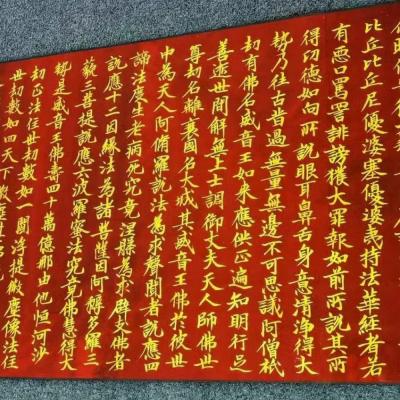 比丘比丘尼優婆塞優婆夷持法華經者若
有惡口罵詈誹謗獲大罪報如前所說其所
得功德如向所說眼耳鼻舌身意清淨得大
勢乃往古昔過無量無邊不可思議阿僧祇
劫有佛名威音王如來應供正遍知明行足
善逝世間解無上士調御丈夫天人師佛世
尊劫名離衰國名大成其威音王佛於彼世
中為天人阿脩羅說法為求聲聞者說應四
諦法度生老病死究竟涅槃為求辟支佛者
說應十二因緣法為諸菩薩因阿耨多羅三
藐三菩提說應六波羅蜜法究竟佛慧得大
勢是威音王佛壽四十萬億那由他恒河沙
劫正法住世劫數如一閻浮提微塵像法住
世劫數如四天下微塵